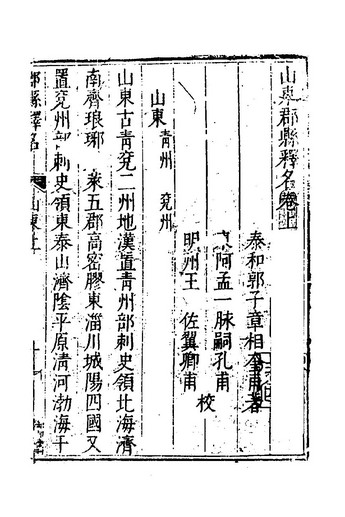 山東郡縣釋名卷上
泰和郭子章相奎甫著
阿孟一脉嗣孔甫
明州王佐翼卿甫校
山東 青州 兖州
山東古青兖二州地漢置青州部刺史領北海濟
南齊琅琊 萊五郡高密膠東淄川城陽四國又
置兖州部刺史領東泰山濟陰平原清河渤海千
郡縣釋名 山東上